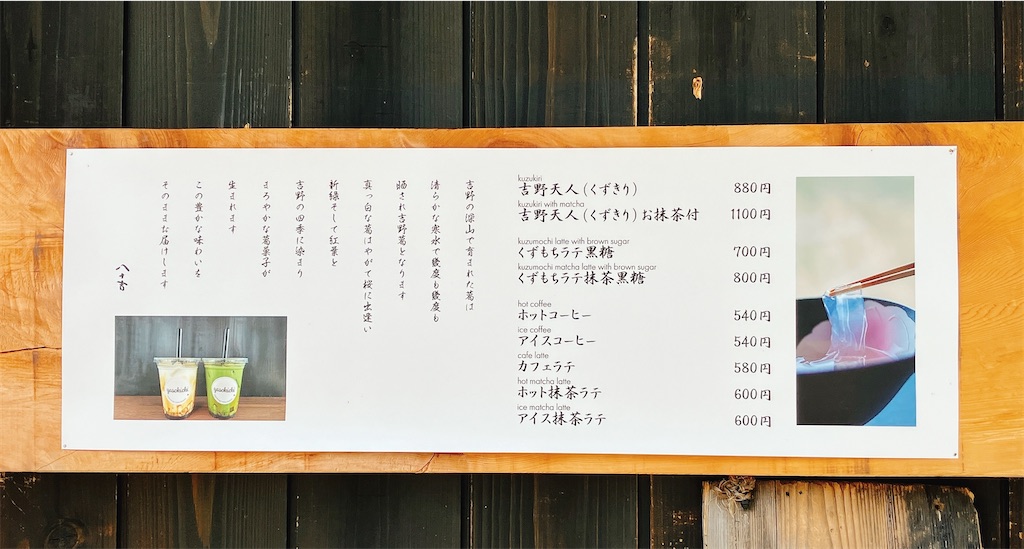 kuzukiri
吉野天人（くずきり） 880円
kuzukiri with matcha
吉野天人（くずきり）お抹茶付 1100円
kuzumochi latte with brown sugar
くずもちラテ黒糖 700円
kuzumochi matcha latte with brown sugar
くずもちラテ抹茶黒糖 800円
hot coffee
ホットコーヒー 540円
ice coffee
アイスコーヒー 540円
cafe latte
カフェラテ 580円
hot matcha latte
ホット抹茶ラテ 600円
ice matcha latte
アイス抹茶ラテ 600円
吉野の深山で育まれた葛は
清らかな寒水で幾度も幾度も
晒され吉野葛となります
真っ白な葛はやがて桜に出逢い
新緑そして紅葉と
吉野の四季に染まり
まろやかな葛菓子が
生まれます
この豊かな味わいを
そのままお届けします
八十吉
yasokichi
yasokichi